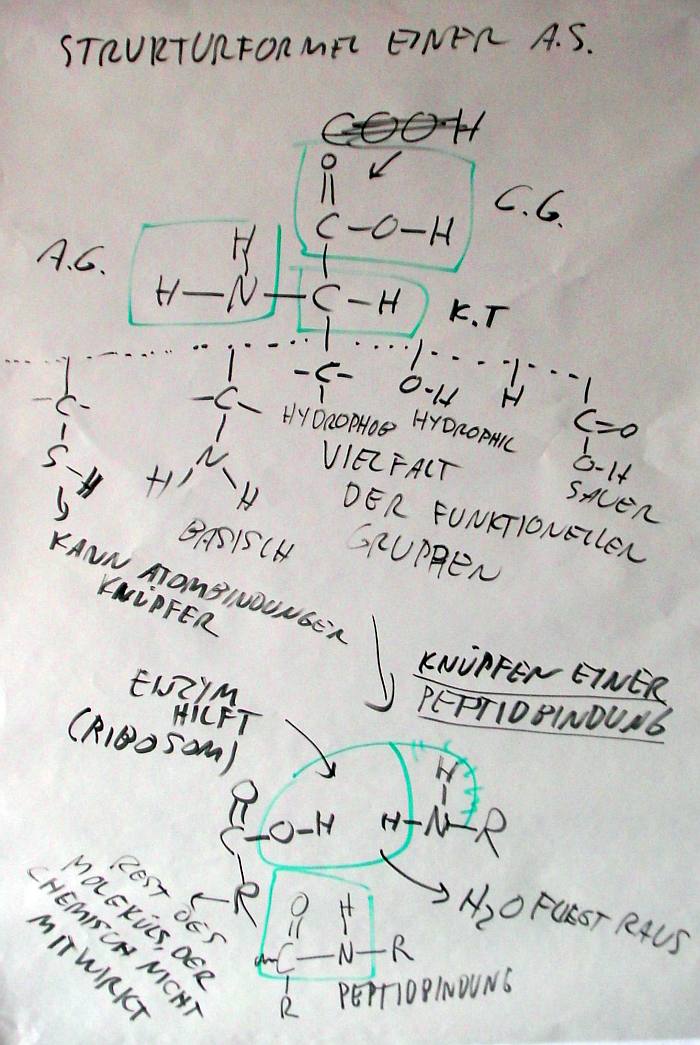 STRUKTURFORMEL EINER A.S.
COOH
O
C-O-H
C.G.
A.G.
H
H-N-C-H
K.T
-C-
-C-
-C-
O-H
H
C=O
S-H
N
H H
O-H
HYDROPHOB
HYDROPHIL
SAUER
BASISCH
VIELFALT
DER FUNKTIONELLEN
GRUPPEN
KANN ATOMBINDUNGEN
KNÜPFEN
KNÜPFEN EINER
PEPTIDBINDUNG
ENZYM
HILFT
(RIBOSOM)
O
C-O-H
H
H-N-R
R
H2O FLIEGT RAUS
REST DES
MOLEKÜLS, DER
CHEMISCH NICHT
MITWIRKT
O H
C-N-R
R
PEPTIDBINDUNG